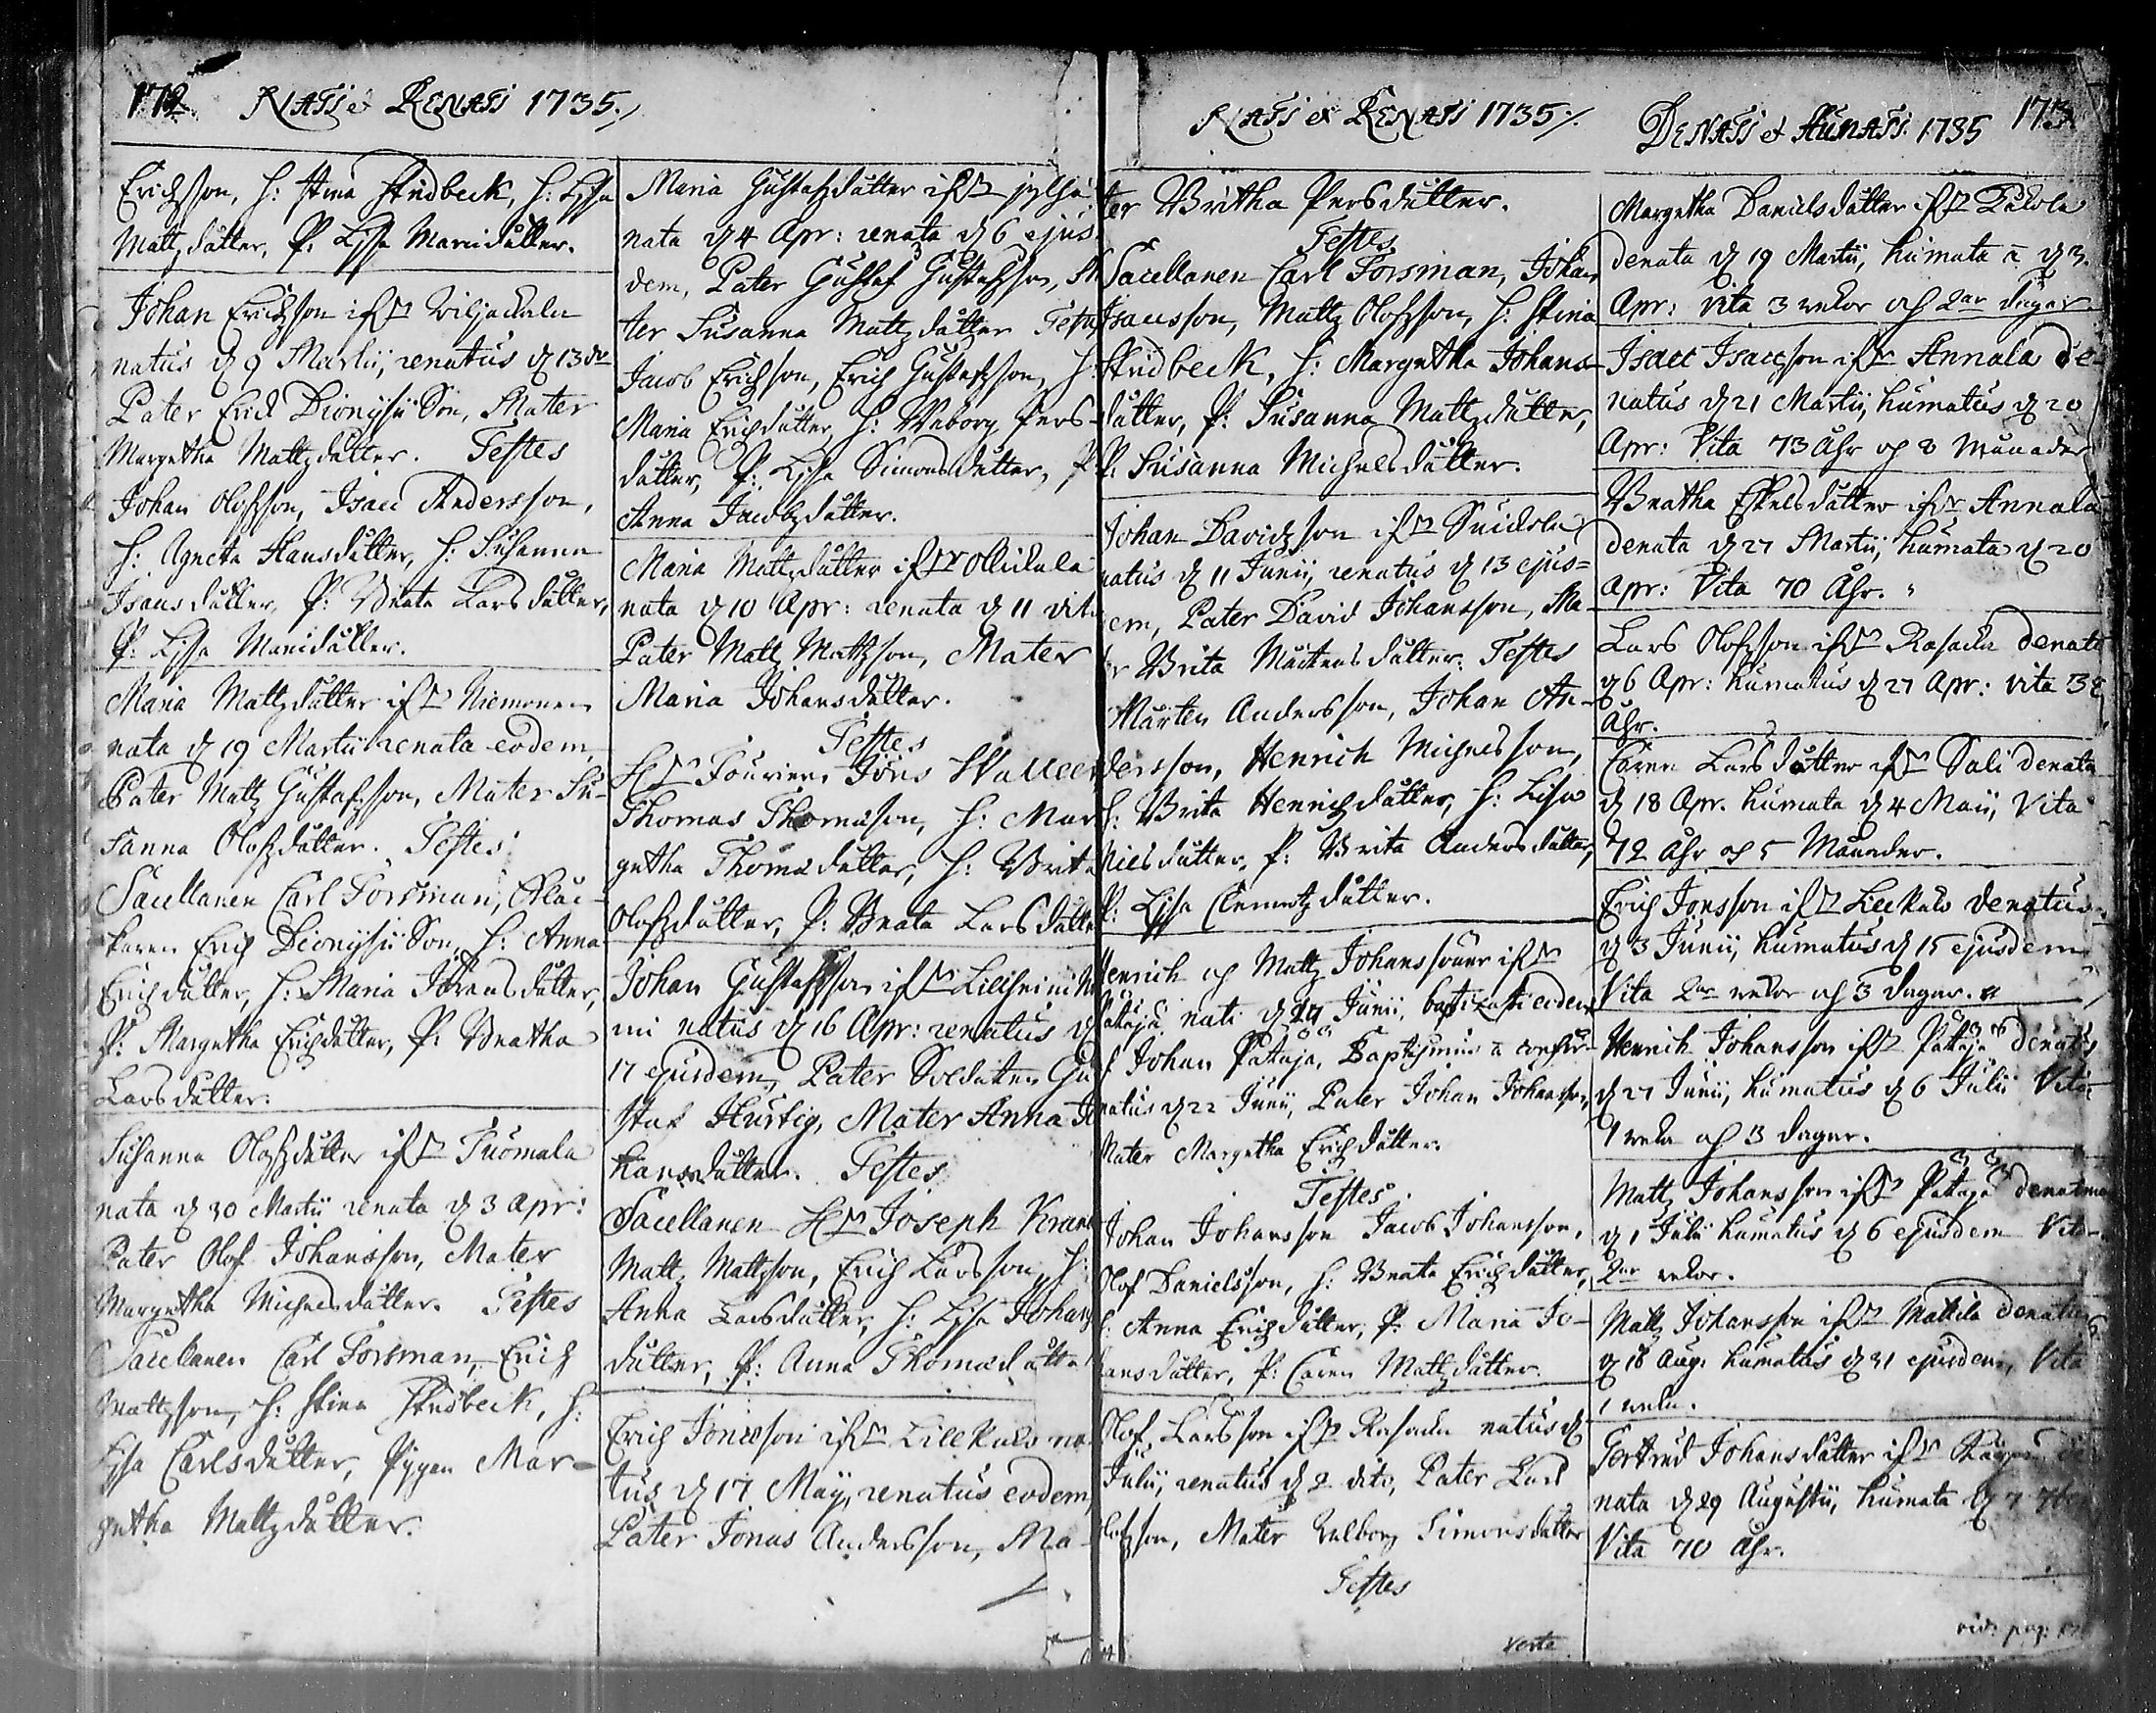 172. NATi et RENATi 1735./
Erichsson, H: Stina Studbeck, H: Lisa
Mattzdotter, P: Lisa Mariædotter.
Johan Erichsson ifrån Viljackala
natus d 9 Martii, renatus d 13 do
Pater Erich Dionysii Son, Mater
Margetha Mattzdotter. Testes
Johan Olofsson, Isaac Andersson,
H: Agneta Hansdotter, H: Susanna
Isaacsdotter, P: Beata Larsdotter,
P: Lisa
Maria Mattzdotter ifrån Niemonen
nata d 19 Martii renata eodem
Pater Mattz Gustafsson, Mater Su-
sanna Olofsdotter. Testes
Sacellanen Carl Forsman, Klåc-
karen Erich Dionysii Son, H: Anna
Erichsdotter, H: Maria Jöransdotter,
P: Margetha Erichsdotter, P: Beatha
Larsdotter.
Susanna Olofsdotter ifrån Tuomala
nata d 30 Martii renata d 3 Apr:
Pater Olof Johansson, Mater
Margetha Michelsdotter. Testes
Sacellanen Carl Forsman, Erich
Mattzson, H: Stina Studbeck, H:
Lisa Carlsdotter, Pigan Mar-
getha Mattzdotter.
Maria Gustafsdotter ifrån
nata d 4 Apr: renata d 6 ejus-
dem, Pater Gustaf Gustafsson, Ma
ter Susanna Mattzdotter Testes
Jacob Erichsson, Erich Gustafsson, H:
Maria Erichsdotter, H: Waborg Pers-
dotter, P: Lisa Simonsdotter, P:
Anna Jacobsdotter.
Maria Mattzdotter ifrån Ollickala
nata d 10 Apr: renata d 11 dito
Pater Mattz Mattzson, Mater
Maria Johansdotter.
Testes
Hr Fourieren Jöns
Thomas Thomasson, H: Mar
getha Thomædotter, H: Brita
Olofsdotter, P: Beata Larsdotter
Johan Gustafsson ifrån
mi natus d 16 Apr: renatus d
17 ejusdem, Pater Soldaten Gu
staf Hurtig, Mater Anna Jo
hansdotter. Testes
Sacellanen Hr Joseph
Mattz Mattzson, Erich Larsson, H:
Anna Larsdotter, H: Lisa Johans
dotter, P: Anna Thomædotter
Erich Jonæson ifrån Lillkulo na-
tus d 17 Maij, renatus eodem,
Pater Jonas Andersson, Ma-
NATi et RENATi 1735/.
ter Britha Persdotter.
Testes
Sacellanen Carl Forsman, Johan
Isaacsson, Mattz Olofsson, H: Stina
Studbeck, H: Margetha Johans-
dotter, P: Susanna Mattzdotter,
P: Susanna Michelsdotter.
Johan Davidsson ifrån Suickola
natus d 11 Junii, renatus d 13 ejus=
dem, Pater David Johansson, Ma-
ter Brita Mårtensdotter. Testes
Mårten Andersson, Johan An-
dersson, Henrich Michelsson,
H: Brita Henrichsdotter, H: Lisa
Nielsdotter, P: Brita Andersdotter,
P: Lisa Clemetzdotter.
Henrich och Mattz Johanssöner ifrån
Pattaja nati d Junii, baptizati eodem
af Johan Pattaja, Baptismus confir-
matus d 22 Junii, Pater Johan Johansson,
Mater Margetha Erichsdotter.
Testes
Johan Johansson Jacob Johansson,
Olof Danielsson, H: Beata Erichsdotter,
H: Anna Erichsdotter, P: Maria Jo-
hansdotter, P: Caren Mattzdotter.
Olof Larsson ifrån Rasacka natus d
Julii, renatus d 2 dito, Pater Lars
Olofsson, Mater Valborg Simonsdotter
Testes
verte
DENATi et HUMATi 1735 173
Margetha Danielsdotter ifrån
denata d 19 Martii, humata d 3
Apr: vita 3 wekor och 2 dagar.
Isaac Isaacson ifrån Annala de-
natus d 21 Martii, humatus d 20
Apr: Vita 73 åhr och 8 Månader
Beatha Eskelsdotter ifrån Annala
denata d 27 Martii, humata d 20
Apr: Vita 70 åhr.
Lars Olofsson ifrån Rasacka denatus
d 6 Apr: humatus d 27 Apr: vita
åhr.
Caren Larsdotter ifrån Sali denata
d 18 Apr. humata d 4 Maii, Vita
72 åhr och 5 Månader.
Erich Jonsson ifrån Lillkulo denatus
d 3 Junii, humatus d 15 ejusdem
Vita 2 wekor och 3 dagar.
Henrich Johansson ifrån Pattaja denatus
d 27 Junii, humatus d 6 Julii Vita
1 weka och 3 dagar.
Mattz Johansson ifrån Pattaja denatus
d 1 Julii humatus d 6 ejusdem Vita
2 wekor.
Mattz Johansson ifrån Mattila denatus
d 18 Aug. humatus d 31 ejusdem, Vita
1 weka.
Gertrud Johansdotter ifrån de
nata d 29 Augusti, humata d 7
Vita 70 åhr.
vid: pag: